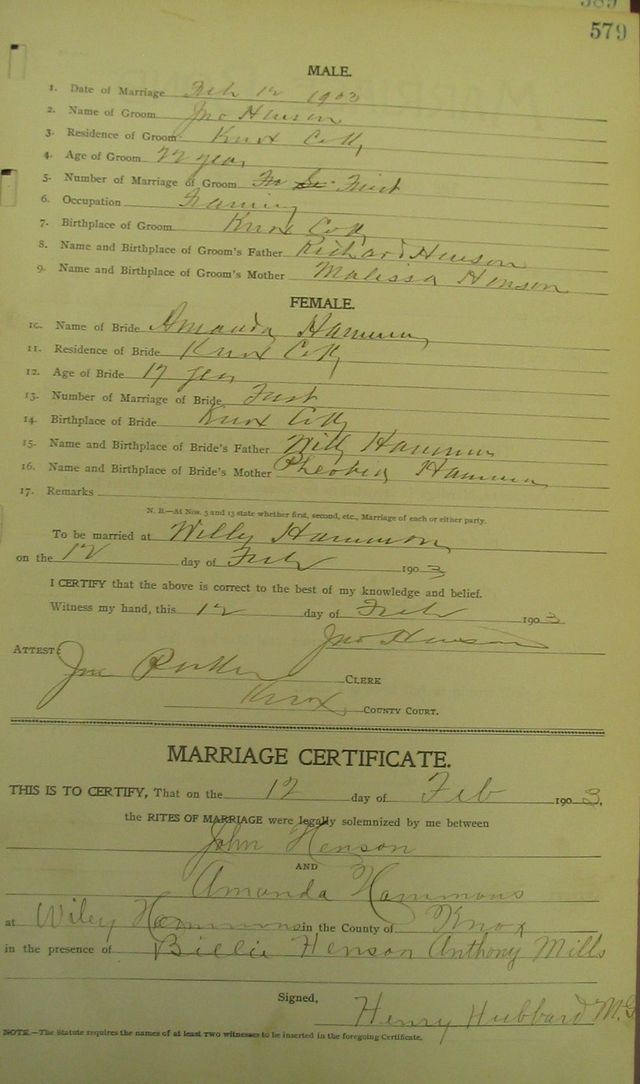 579
MALE.
1. Date of Marriage Feb 12 1903
2. Name of Groom Jno Henson
3. Residence of Groom Knox Co Ky
4. Age of Groom 22 year
5. Number of Marriage of Groom First
6. Occupation Farming
7. Birthplace of Groom Knox Co Ky
8. Name and Birthplace of Groom's Father Richard Henson
9. Name and Birthplace of Groom's Mother Malissa Henson
FEMALE.
10. Name of Bride Amanda Hammon
11. Residence of Bride Knox Co Ky
12. Age of Bride 17 year
13. Number of Marriage of Bride First
14. Birthplace of Bride Knox Co Ky
15. Name and Birthplace of Bride's Father Willy Hammon
16. Name and Birthplace of Bride's Mother Hammon
17. Remarks
N. B.—At Nos. 5 and 13 state whether first, second, etc., Marriage of each or either party.
To be married at Willy Hammon
on the 12 day of Feb 1903
I CERTIFY that the above is correct to the best of my knowledge and belief.
Witness my hand, this 12 day of Feb 1903
Jno Henson
ATTEST: CLERK
Knox COUNTY COURT.
MARRIAGE CERTIFICATE.
THIS IS TO CERTIFY, That on the 12 day of Feb 1903.
the RITES OF MARRIAGE were legally solemnized by me between
John Henson
AND
Amanda Hammons
at Wiley Hammons in the County of Knox
in the presence of Billie Henson Anthony Mills
Signed, Henry Hubbard M.G
NOTE.—The Statute requires the names of at least two witnesses to be inserted in the foregoing Certificate.